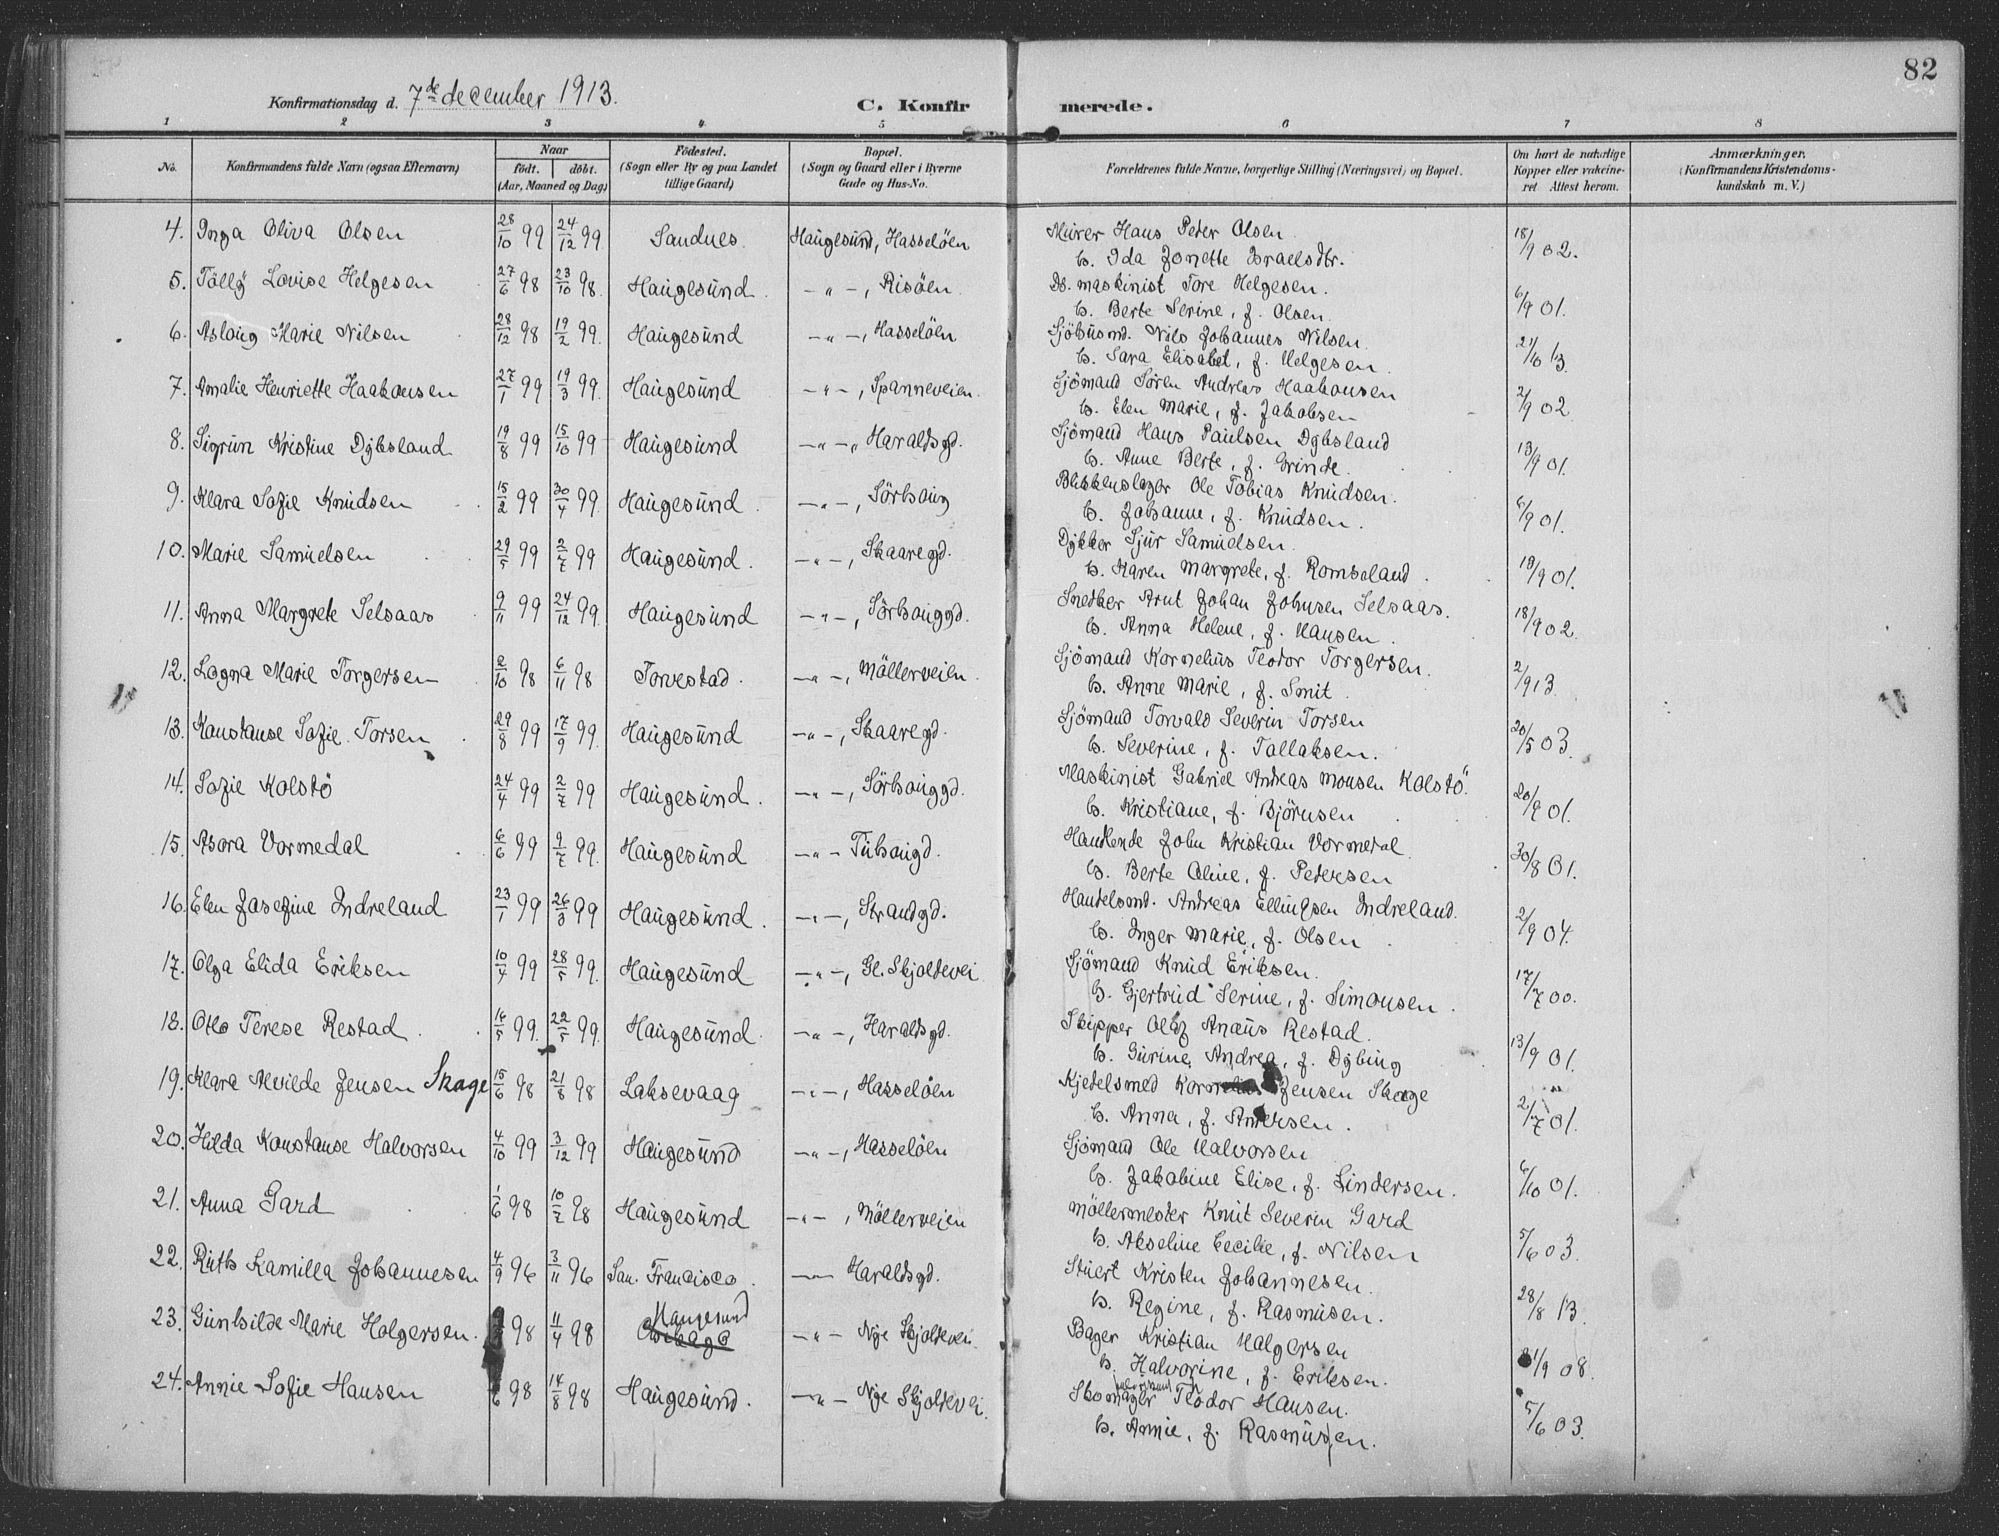 82
Konfirmationsdag d. 7de december 1913.
C. Konfirmerede.
1 2 3 4 5 6 7 8
No. Konfirmandens fulde Navn (ogsaa Efternavn) Naar født. døbt. (Aar, Maaned og Dag) Fødested. (Sogn eller By og paa Landet tillige Gaard) Bopæl. (Sogn og Gaard eller i Byerne Gade og Hus-No. Forældrenes fulde Navne, borgerlige Stilling (Næringsvei) og Bopæl. Om havt de naturlige Kopper eller vakcineret. Attest herom. Anmærkninger. (Konfirmandens Kristendomskundskab m. V.)
4. Inga Oliva Olsen 28/10 99 24/12 99. Sandnes. Haugesund, Hasseløen Murer Hans Peder Olsen. 18/9 02.
h. Ida Jonette Israelsdtr.
5. Tølly Lovise Helgesen 27/6 98 23/10 98. Haugesund. -"-, Risøen. Ds. maskinist Tore Helgesen. 6/9 01.
h. Berte Serine, f. Olsen.
6. Aslaug Marie Nilsen 28/12 98 19/2 99. Haugesund -"-, Hasseløen Sjøbusmd. Nils Johannes Nilsen. 21/6 13.
h. Sara Elisabet, f. Helgesen.
7. Amalie Henriette Haakonsen 27/1 99 19/3 99. Haugesund -"-, Spanneveien. Sjømand Søren Andreas Haakonsen 2/9 02
h. Elen Marie, f. Jakobsen
8. Sigrun Kristine Dybsland 19/8 99 15/10 99 Haugesund -"-, Haraldsgd. Sjømand Hans Paulsen Dybsland 13/9 01.
h. Anne Berte, f. Grinde.
9. Klara Sofie Knudsen 15/2 99 30/4 99. Haugesund. -"-, Sørhaug Blikkenslager Ole Tobias Knudsen. 6/9 01.
h. Johanne, f. Knudsen.
10. Marie Samuelsen 29/5 99 2/7 99 Haugesund. -"-, Skaaregd. Dykker Sjur Samuelsen. 19/9 01.
h. Karen Margrete, f. Romseland.
11. Anna Margrete Selsaas 9/11 99 24/12 99. Haugesund -"-, Sørhauggd. Snedker Arnt Johan Johnsen Selsaas. 18/9 02.
h. Anna Helene, f. Hansen.
12. Lagna Marie Torgersen 2/10 98 6/11 98 Torvestad. -"-, Møllerveien. Sjømand Kornelius Teodor Torgersen. 2/9 13.
h. Anne Marie, f. Smit.
13. Konstanse Sofie Torsen 29/8 99 17/9 99. Haugesund -"-, Skaaregd. Sjømand Torvald Severin Torsen 20/5 03.
h. Severine, f. Tallaksen.
14. Sofie Kolstø 24/4 99 2/7 99 Haugesund. -"-, Sørhauggd. Maskinist Gabriel Andreas Monsen Kolstø. 20/9 01.
h. Kristiane, f. Bjørnsen
15. Asora Vormedal 6/6 99 9/7 99. Haugesund -"- Tuhaugd. Handlende John Kristian Vormedal. 30/8 01.
h. Berte Oline, f. Pedersen
16. Elen Josefine Indreland 23/1 99 26/3 99 Haugesund. -"-, Strandgd. Handelsmd. Andreas Ellingsen Indreland. 2/9 04.
h. Inger Marie, f. Olsen
17. Olga Elida Eriksen 10/4 99 28/5 99. Haugesund -"-, Gl. Skjoldevei Sjømand Knud Eriksen. 17/7 00.
h. Gjertrud Serine, f. Simonsen.
18. Otto Terese Restad. 16/5 99. 22/5 99. Haugesund. -"-, Haraldsgd. Skipper Anaus Restad. 13/9 01.
h. Gurine Andrea, f. Dybing
19. Klara Alvilde Jensen Skage 15/6 98 21/8 98 Laksevaag -"-, Hasseløen Kjedelsmed Jensen Skage 2/7 01.
h. Anna, f. Andersen.
20. Hilda Konstanse Halvorsen 4/10 99 3/12 99 Haugesund -"-, Hasseløen Sjømand Ole Halvorsen 6/10 01.
h. Jakobine Elise, f. Lindersen.
21. Anna Gard 1/6 98 10/7 98 Haugesund -"-, Møllerveien Møllermester Knut Severin Gard 5/6 03.
h. Akseline Cecilie, f. Nilsen
22. Ruth Kamilla Johannesen 4/9 96 3/11 96 San. Francisco. -"- Haraldsgd. Stuert Kristen Johannesen. 28/8 13.
h. Regine, f. Rasmusen.
23. Gunhilde Marie Holgersen. 98 11/4 98 Haugesund -"- Nye Skjoldevei Bager Kristian Halgersen /9 08.
h. Halvorine, f. Eriksen.
24. Annie Sofie Hansen /6 98 14/8 98 Haugesund. -"- Nye Skjoldevei. Skomager Teodor Hansen. 5/6 03.
h. Annie, f. Rasmusen.